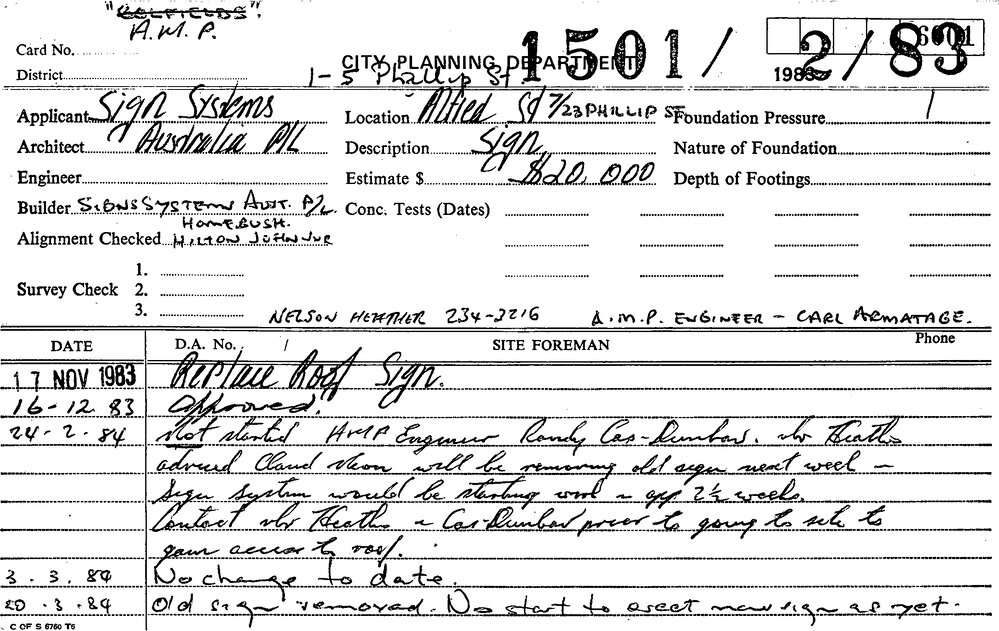 "GOLFIELDS".
A.M.P.
Card No.
District
CITY PLANNING DEPARTMENT
1501/2/83
6001
1983
1-5 Phillip St
Applicant Sign Systems
Location Alfred St 7/23 PHILLIP ST
Foundation Pressure
Architect Australia P/L
Description Sign
Nature of Foundation
Engineer
Estimate $ $20,000
Depth of Footings
Builder SIGNS SYSTEMS AUST. P/L.
Conc. Tests (Dates)
HOMEBUSH.
Alignment Checked HILTON JOHN
1.
Survey Check 2.
3.
NELSON HEATHER 234-3216 A.M.P. ENGINEER - CARL ARMATAGE.
DATE D.A. No. / SITE FOREMAN Phone
17 NOV 1983 Replace Roof Sign.
16-12.83 approved.
24-2-84 Not started AMP Engineer Randy Cas-Dunbar. Mr Heath
advised Claud Neon will be removing old sign next week -
Sign System would be starting work in app 2½ weeks.
Contact Mr Heath or Cas-Dunbar prior to going to site to
gain access to roof.
3.3.84 No change to date.
20.3.84 Old sign removed. No start to erect new sign as yet.
C OF S 6760 T6